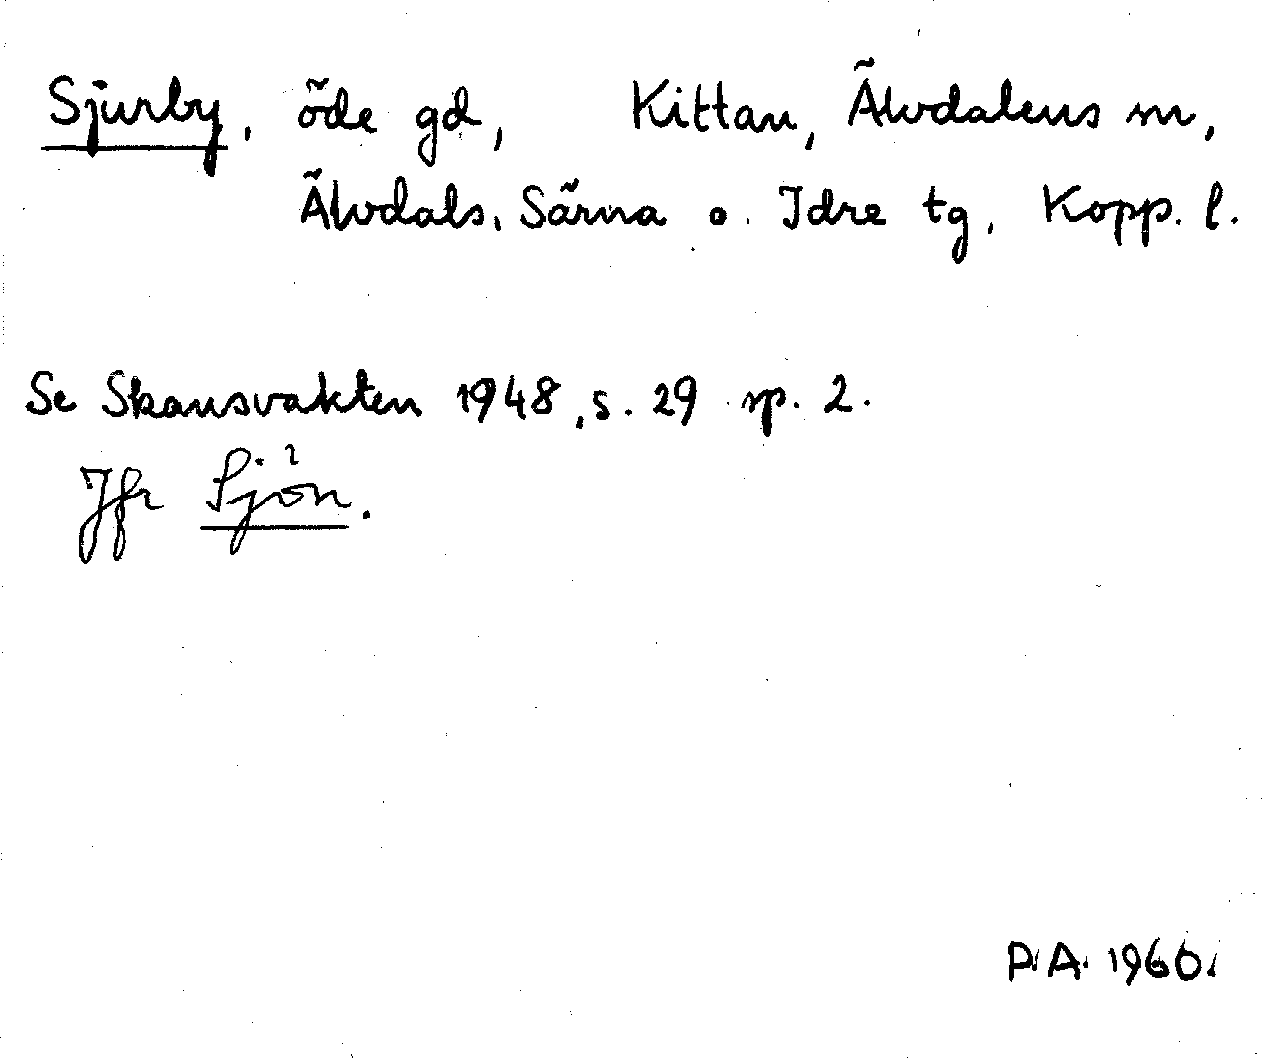 Sjurby, öde gd, Kittan, Älvdalens sn,
Älvdals, Särna o. Idre tg, Kopp. l.
Se Skansvakten 1948, s. 29 sp. 2.
Jfr Sjön.
P.A. 1960.